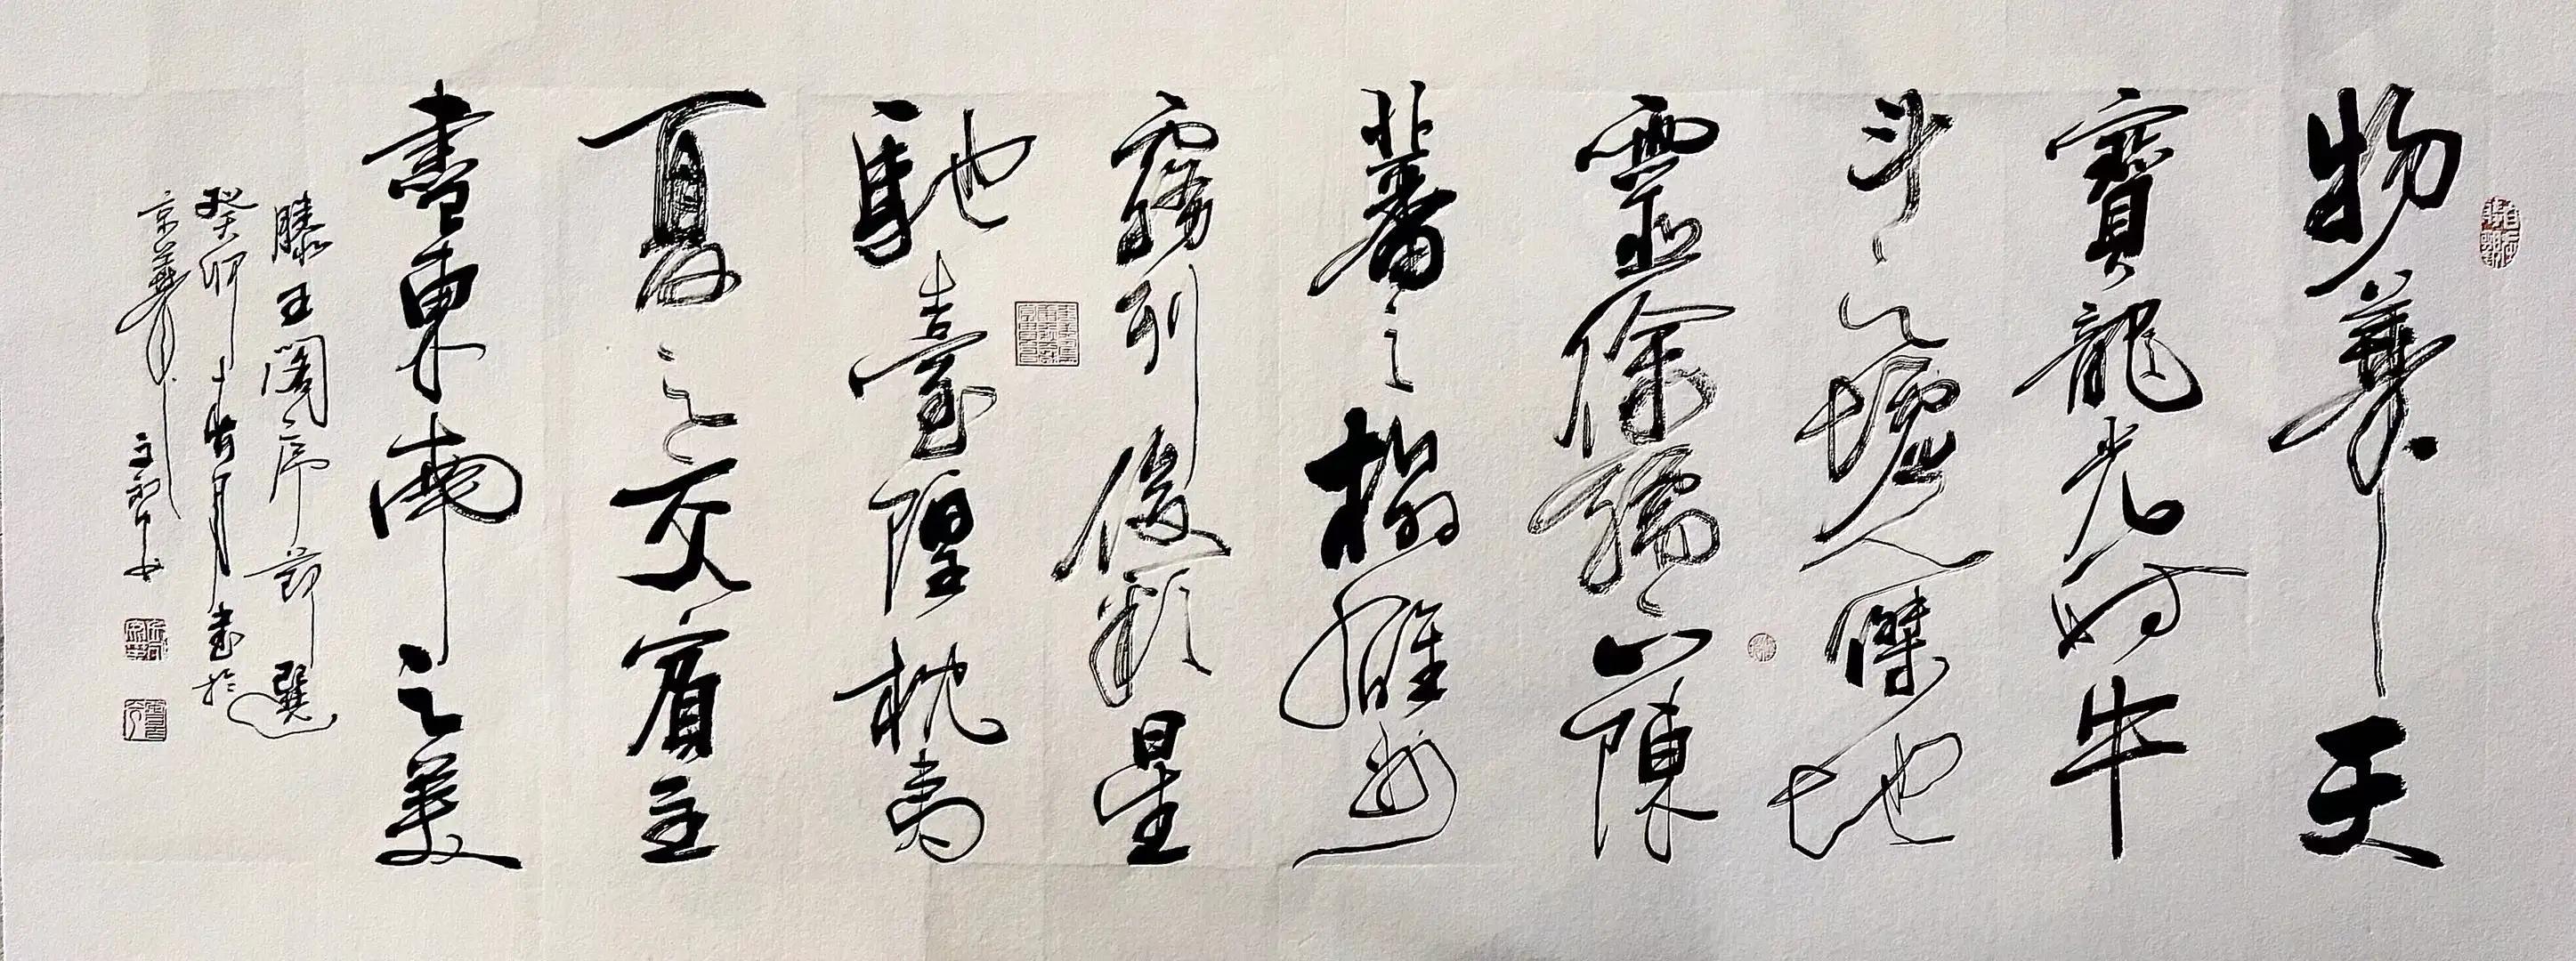 物華天
寶龍光射牛
斗之墟人傑地
靈徐孺下陳
蕃之榻雄州
霧列俊彩星
馳臺隍枕夷
夏之交賓主
盡東南之美
滕王閣序節選
癸卯月書於
京華